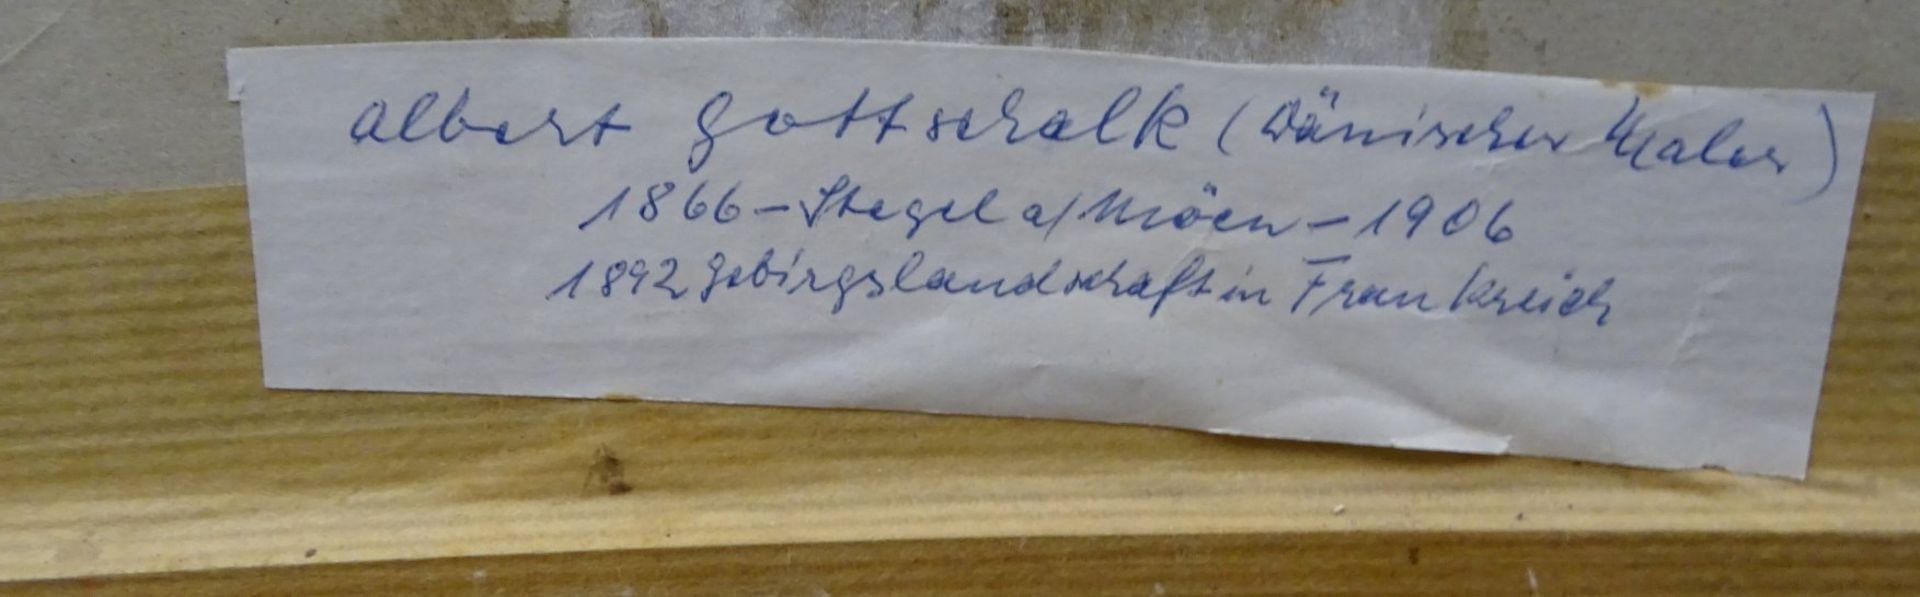 Albert Gottschalk (Dänischer Maler)
1866 – Stegel a/ Möen – 1906
1892 Gebirgslandschaft in Frankreich